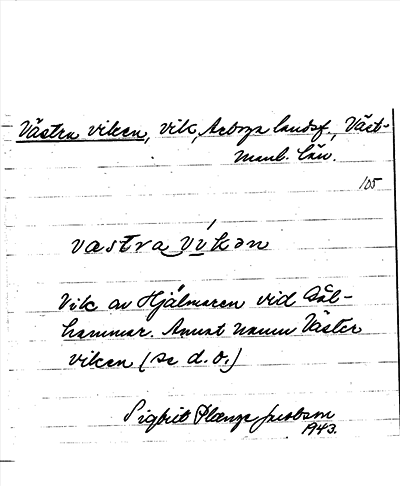 Västra viken, vik, Arboga landsf., Väst-
manl. län.
105
västra vikən
Vik av Hjälmaren vid Gäl-
hammar. Annat namn Väster
viken (se d.o.)
Sigbrit Plænge Jacobson
1943.